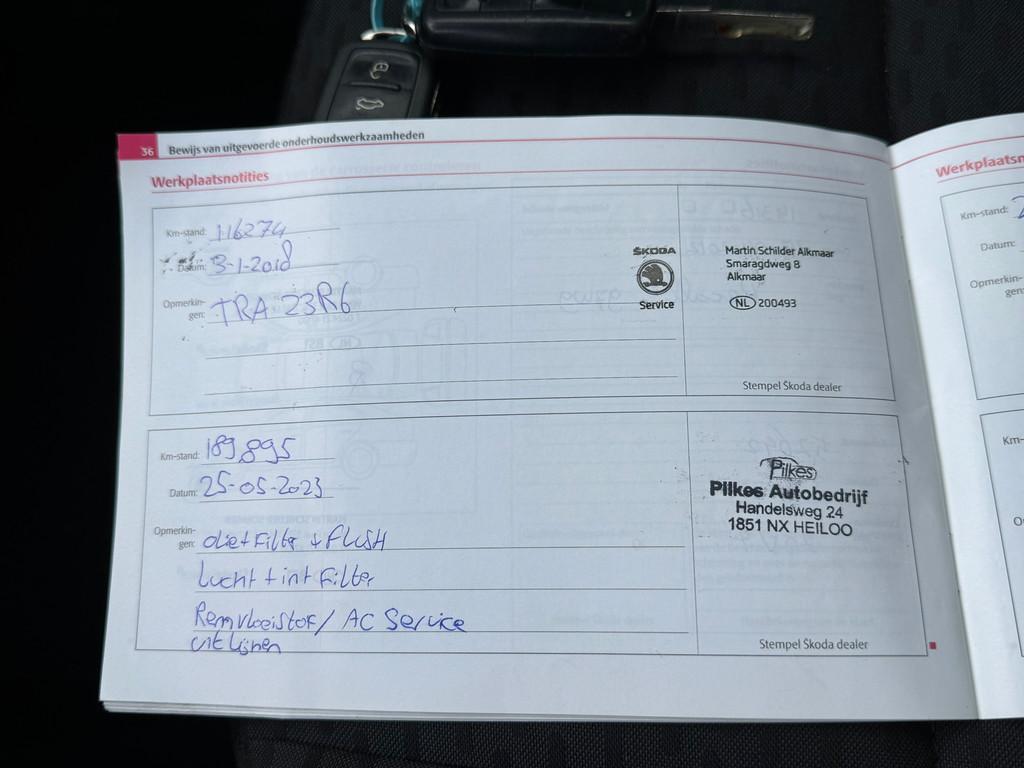 36 Bewijs van uitgevoerde onderhoudswerkzaamheden
Werkplaatsnotities
Km-stand: 116274
Datum: 3-1-2018
Opmerkin-
gen: TRA 23R6
ŠKODA
Service
Martin Schilder Alkmaar
Smaragdweg 8
Alkmaar
NL 200493
Stempel Škoda dealer
Km-stand: 189.895
Datum: 25-05-2023
Opmerkin-
gen: olie+Filter + Flush
Lucht + int Filter
Remvloeistof / AC Service
uitlijnen
Pilkes
Pilkes Autobedrijf
Handelsweg 24
1851 NX HEILOO
Stempel Škoda dealer
Werkplaatsn
Km-stand: 2
Datum:
Opmerkin-
gen:
Km-